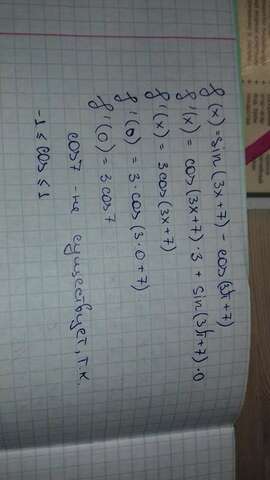 f(x)=sin(3x+7)-cos(3π+7)
f'(x)=cos(3x+7)·3+sin(3π+7)·0
f'(x)=3cos(3x+7)
f'(0)=3·cos(3·0+7)
f'(0)=3cos7
cos7 - не существует, т.к.
-1≤cos≤1